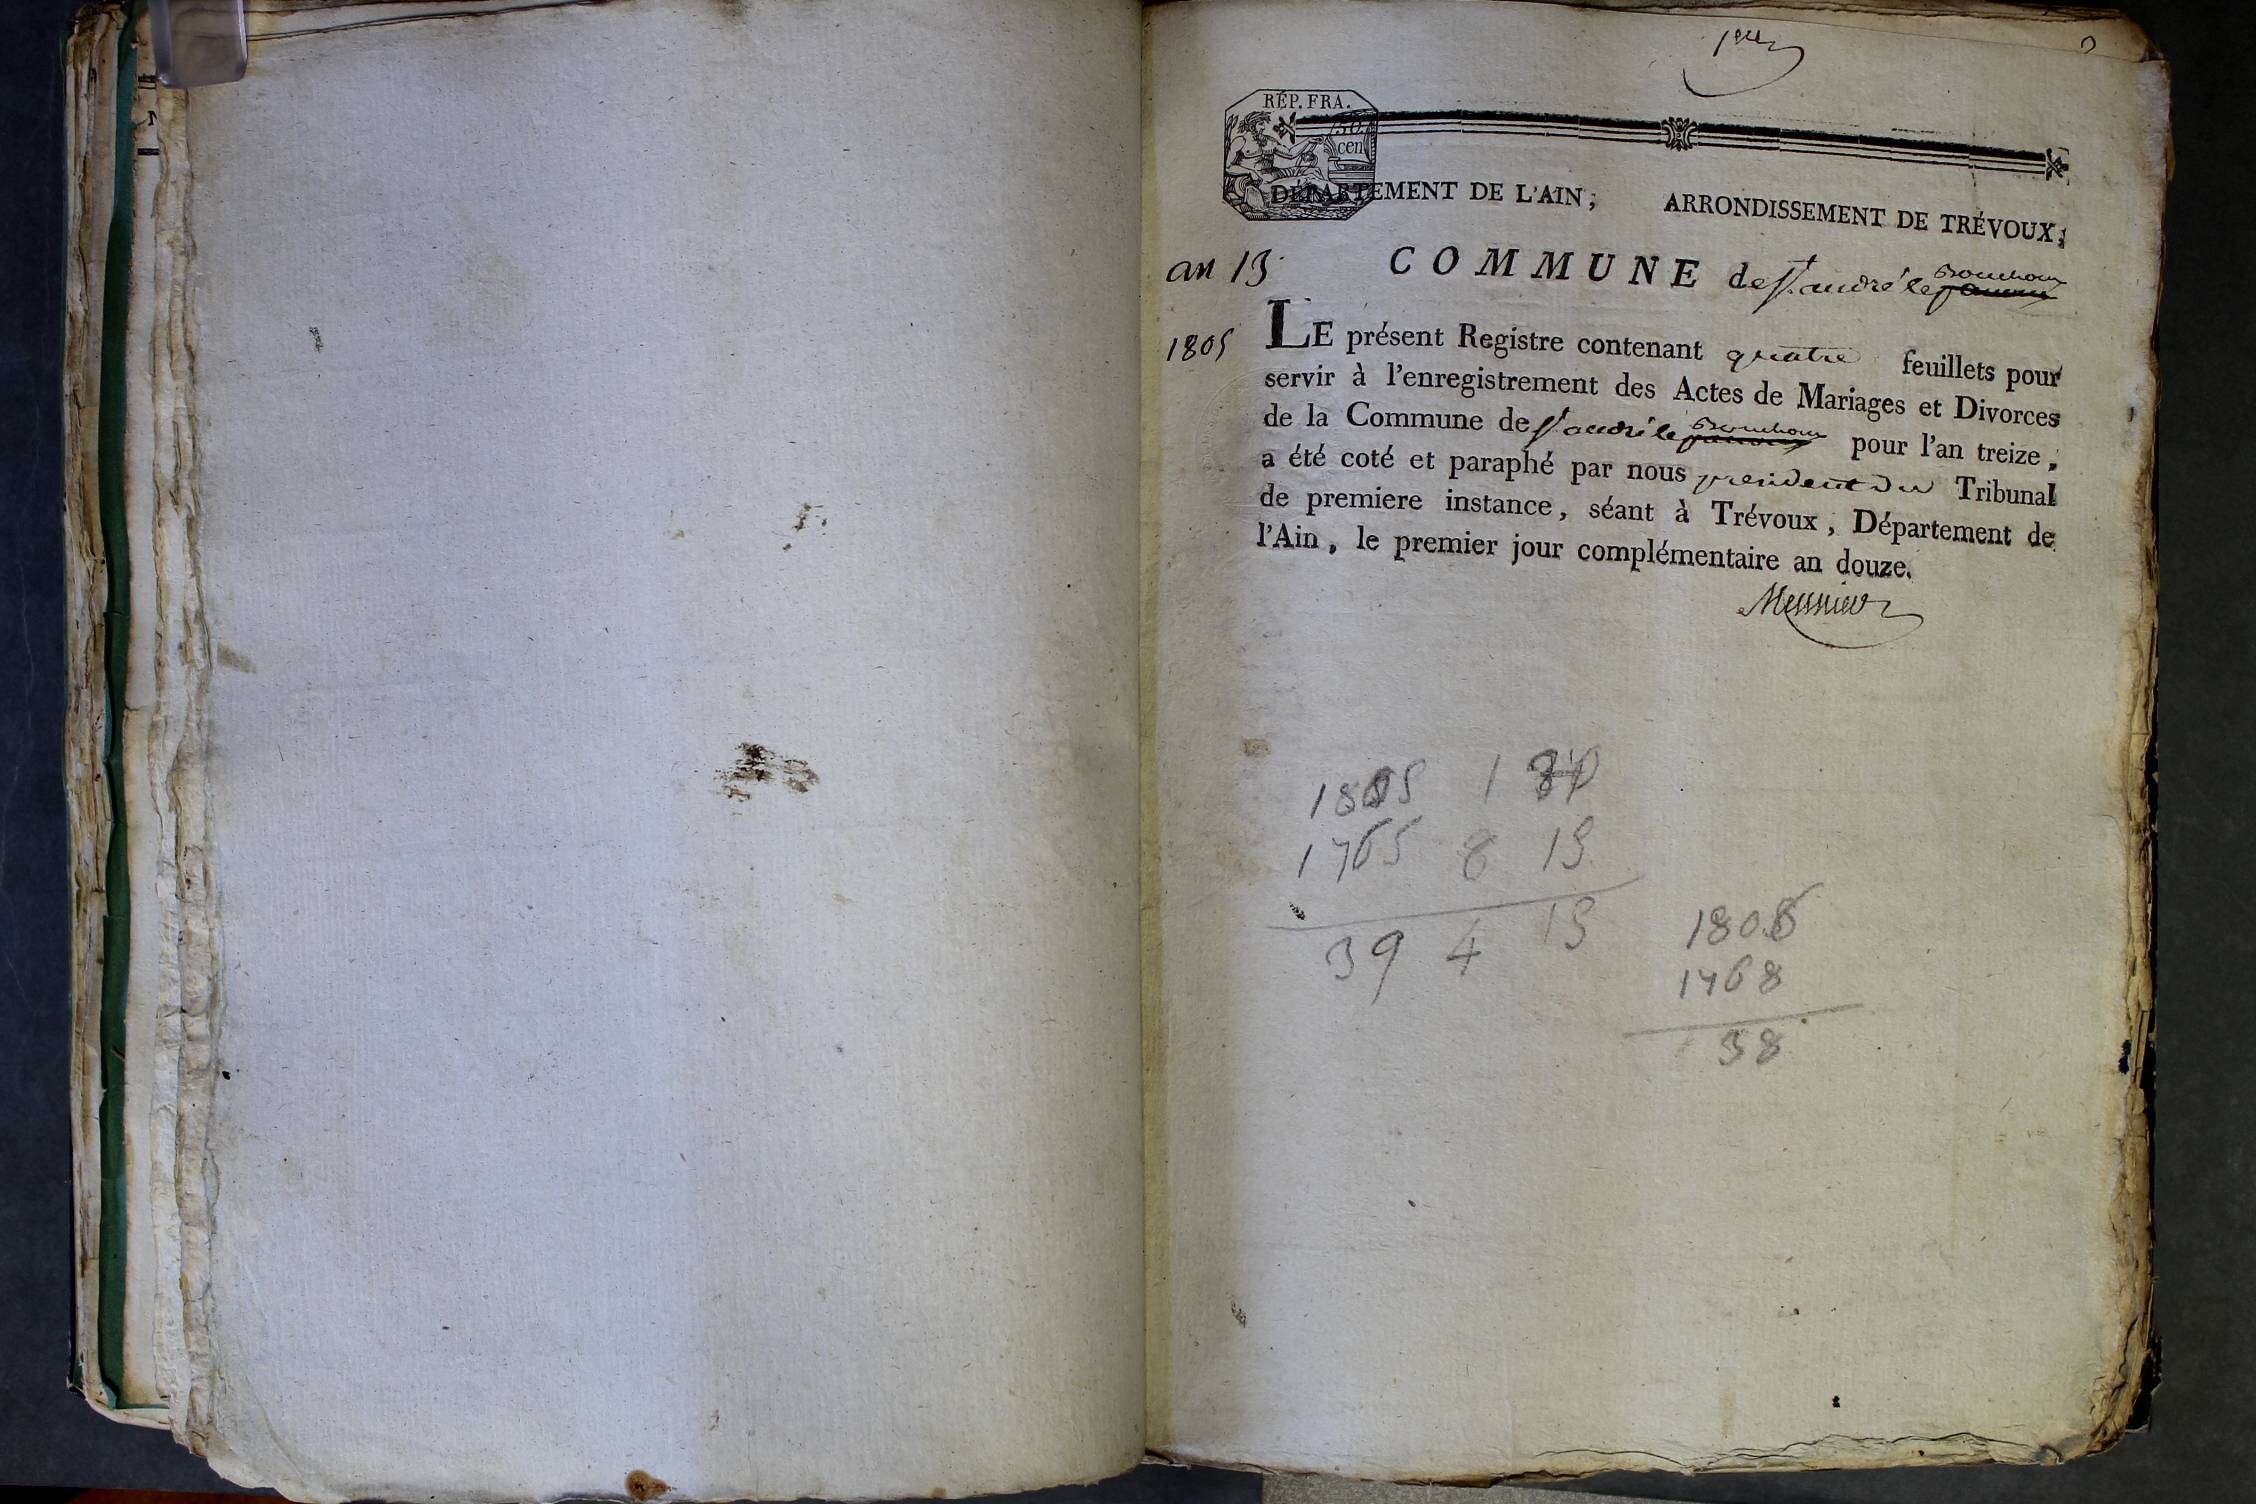 1er
RÉP. FRA.
50
cen
DÉPARTEMENT DE L'AIN; ARRONDISSEMENT DE TRÉVOUX;
an 13
COMMUNE de St. andré le Bouchoux
1805
LE présent Registre contenant quatre feuillets pour
servir à l'enregistrement des Actes de Mariages et Divorces
de la Commune de St. andré le Bouchoux pour l'an treize,
a été coté et paraphé par nous president du Tribunal
de premiere instance, séant à Trévoux, Département de
l'Ain, le premier jour complémentaire an douze.
1805 1
1765 8 15
39 4 15
1806
1768
38